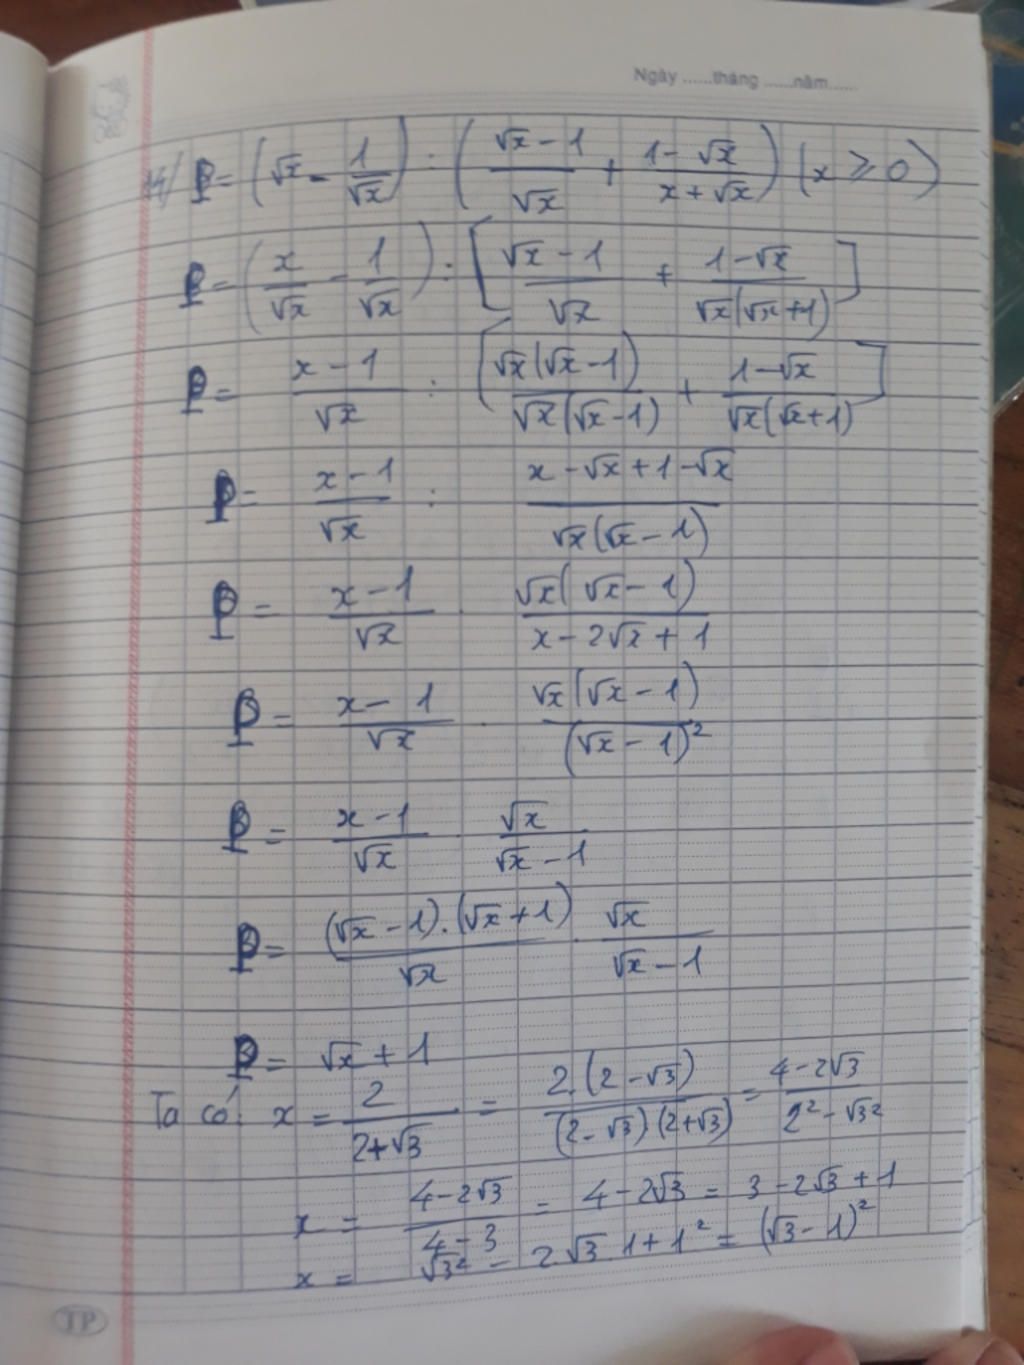 Ngày ......tháng ......năm......
14/ P = (√x - 1/√x) : ((√x - 1)/√x + (1 - √x)/(x + √x)) (x ≥ 0)
P = (x/√x - 1/√x) : [(√x - 1)/√x + (1 - √x)/(√x(√x + 1))]
P = (x - 1)/√x : [(√x(√x - 1))/(√x(√x - 1)) + (1 - √x)/(√x(√x + 1))]
P = (x - 1)/√x : (x - √x + 1 - √x)/(√x(√x - 1))
P = (x - 1)/√x . (√x(√x - 1))/(x - 2√x + 1)
P = (x - 1)/√x . (√x(√x - 1))/(√x - 1)²
P = (x - 1)/√x . √x/(√x - 1)
P = ((√x - 1).(√x + 1))/√x . √x/(√x - 1)
P = √x + 1
Ta có: x = 2/(2+√3) = (2.(2 - √3))/((2 - √3)(2+√3)) = (4 - 2√3)/(2² - √3²)
x = (4 - 2√3)/(4 - 3) = 4 - 2√3 = 3 - 2√3 + 1
x = √3² - 2√3 1 + 1² = (√3 - 1)²
TP